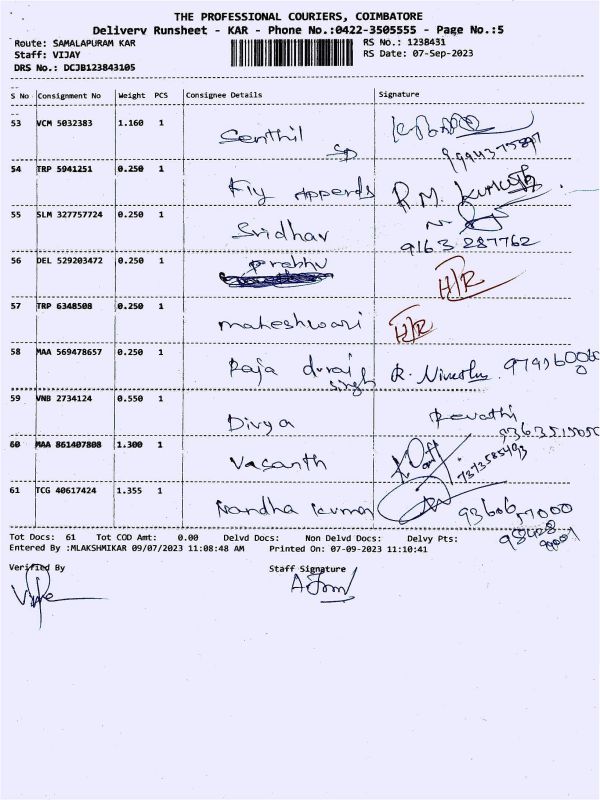 THE PROFESSIONAL COURIERS, COIMBATORE
Delivery Runsheet - KAR - Phone No.:0422-3505555 - Page No.:5
Route: SAMALAPURAM KAR RS No.: 1238431
Staff: VIJAY RS Date: 07-Sep-2023
DRS No.: DCJB123843105
S No Consignment No Weight PCS Consignee Details Signature
53 VCM 5032383 1.160 1 Senthil
54 TRP 5941251 0.250 1 Fly Apperds R.M.
55 SLM 327757724 0.250 1 Sridhar 9163 287762
56 DEL 529203472 0.250 1 Prabhu H/R
57 TRP 6348508 0.250 1 maheshwari H/R
58 MAA 569478657 0.250 1 Raja durai singh R.
59 VNB 2734124 0.550 1 Divya Revathi
60 MAA 861407808 1.300 1 Vasanth
61 TCG 40617424 1.355 1 Nandha kumar
Tot Docs: 61 Tot COD Amt: 0.00 Delvd Docs: Non Delvd Docs: Delvy Pts:
Entered By :MLAKSHMIKAR 09/07/2023 11:08:48 AM Printed On: 07-09-2023 11:10:41
Verified By Staff Signature